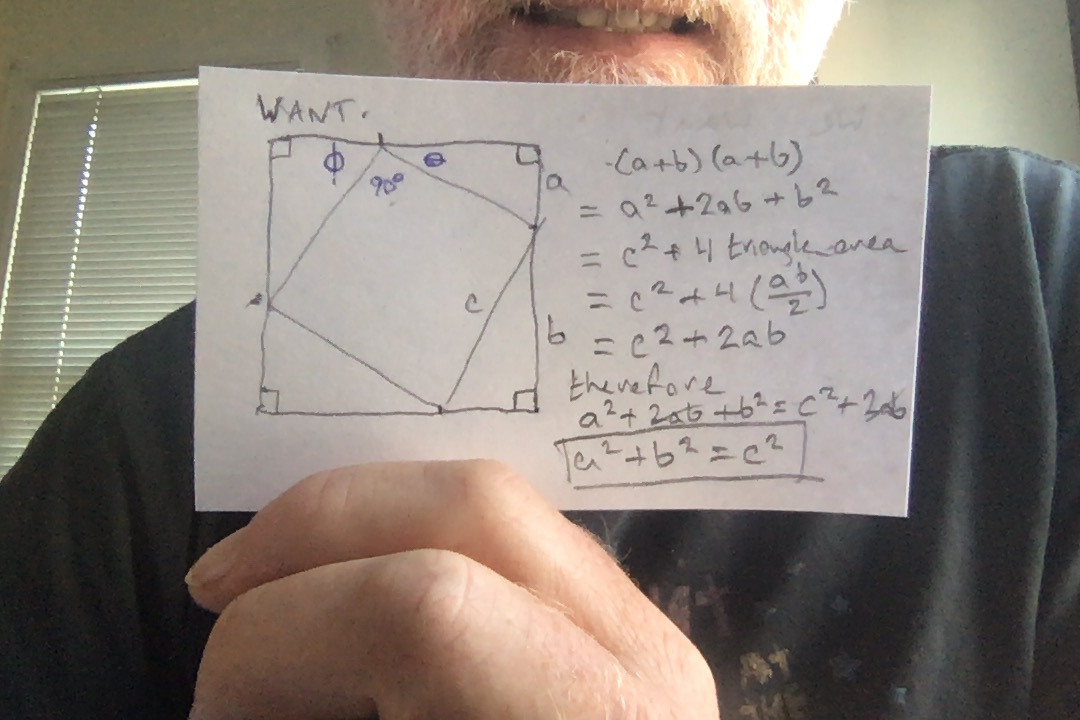 WANT.
φ
θ
90°
a
c
b
(a+b)(a+b)
= a² + 2ab + b²
= c² + 4 triangle area
= c² + 4 (ab/2)
= c² + 2ab
therefore
a² + 2ab + b² = c² + 2ab
a² + b² = c²